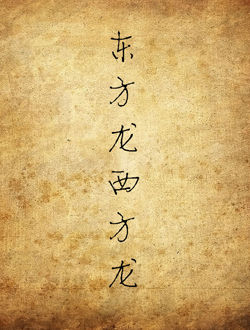 东方龙西方龙